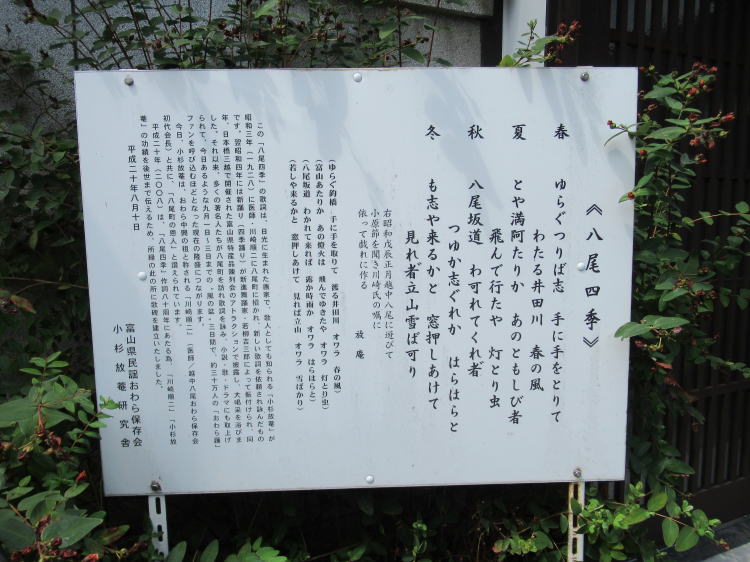 《八尾四季》
春　ゆらぐつりば志　手に手をとりて
わたる井田川　春の風
夏　とや満阿たりか　あのともしび者
飛んで行たや　灯とり虫
秋　八尾坂道　わ可れてくれ者
つゆか志ぐれか　はらはらと
冬　も志や来るかと　窓押しあけて
見れ者立山雪ば可り
右昭和戊辰正月越中八尾に遊びて
小原節を聞き川崎氏の嘱に
依って戯れに作る
放庵
(ゆらぐ釣橋　手に手を取りて　渡る井田川　オワラ　春の風)
(富山あたりか　あの燈火は　飛んでゆきたや　オワラ　灯とり虫)
(八尾坂道　わかれて来れば　露か時雨か　オワラ　はらはらと)
(若しや来るかと　窓押しあけて　見れば立山　オワラ　雪ばかり)
この「八尾四季」の歌詞は、日光に生まれた画家で、歌人としても知られる「小杉放菴」が
昭和三年(一九二八)に医師・川崎順二に八尾町に招かれ、新しい歌詞を依頼され詠んだもの
です。翌昭和四年には新踊り(四季踊り)が新進舞踊家・若柳吉三郎によって振付けられ、同
年、日本橋三越で開催された富山県特産品陳列会のアトラクションで披露し、大喝采を浴びま
した。それ以来、多くの著名人たちが八尾町を訪れ歌詞を詠み、小説・歌・ドラマにも取上げ
られて、今日あるような九月一日~三日までの、「風の盆」三日間で、約三十万人の「おわら踊」
ファンを呼び込むほどとなった現在の隆盛につながります。
今日、小杉放菴は、おわら中興の祖と称される「川崎順二」(医師/越中八尾おわら保存会
初代会長)と共に、「八尾町の恩人」と讃えられています。
平成二十年(二〇〇八)は、「八尾四季」作詞八十周年にあたる為、「川崎順二」「小杉放
菴」の功績を後世まで伝えるため、所縁の此の所に歌碑を建立いたしました。
平成二十年八月十日
富山県民謡おわら保存会
小杉放菴研究舎